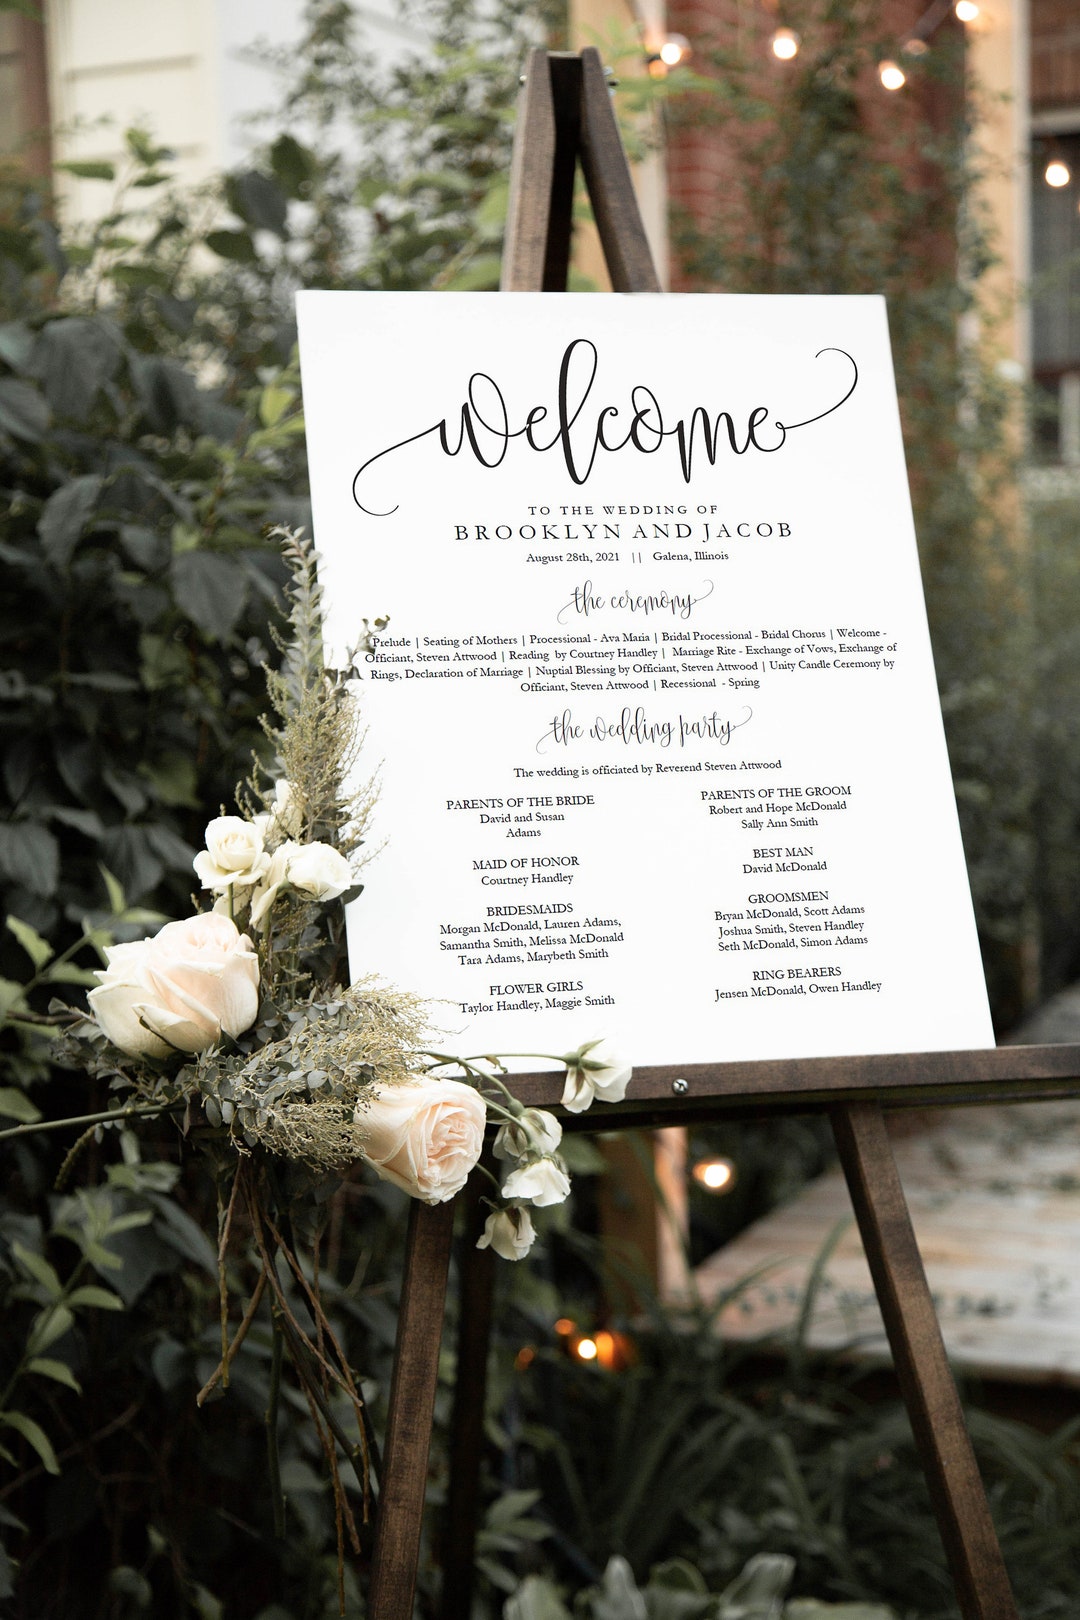 welcome
TO THE WEDDING OF
BROOKLYN AND JACOB
August 28th, 2021 || Galena, Illinois
the ceremony
Prelude | Seating of Mothers | Processional - Ava Maria | Bridal Processional - Bridal Chorus | Welcome -
Officiant, Steven Attwood | Reading by Courtney Handley | Marriage Rite - Exchange of Vows, Exchange of
Rings, Declaration of Marriage | Nuptial Blessing by Officiant, Steven Attwood | Unity Candle Ceremony by
Officiant, Steven Attwood | Recessional - Spring
the wedding party
The wedding is officiated by Reverend Steven Attwood
PARENTS OF THE BRIDE
David and Susan
Adams
MAID OF HONOR
Courtney Handley
BRIDESMAIDS
Morgan McDonald, Lauren Adams,
Samantha Smith, Melissa McDonald
Tara Adams, Marybeth Smith
FLOWER GIRLS
Taylor Handley, Maggie Smith
PARENTS OF THE GROOM
Robert and Hope McDonald
Sally Ann Smith
BEST MAN
David McDonald
GROOMSMEN
Bryan McDonald, Scott Adams
Joshua Smith, Steven Handley
Seth McDonald, Simon Adams
RING BEARERS
Jensen McDonald, Owen Handley